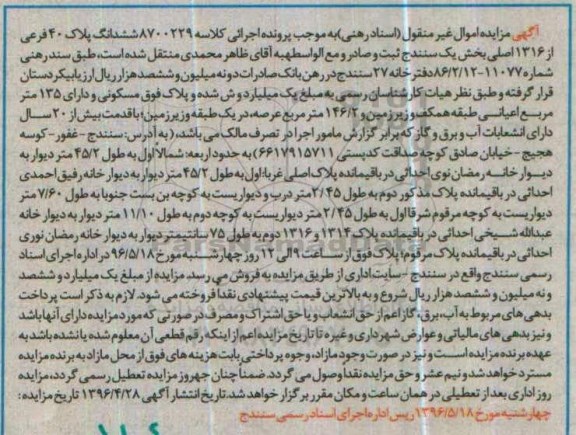 آگهی مزایده اموال غیر منقول (اسناد رهنی) به موجب پرونده اجرائی کلاسه ۸۷۰۰۲۲۹ ششدانگ پلاک ۴۰ فرعی
از ۱۳۱۶ اصلی بخش یک سنندج ثبت و صادر و مع الواسطه به آقای ظاهر محمدی منتقل شده است، طبق سند رهنی
شماره ۱۱۰۷۷-۸۶/۲/۱۲ دفترخانه ۲۷ سنندج در رهن بانک صادرات دو نه میلیون و ششصد هزار ریال ارزیابی کردستان
قرار گرفته و طبق نظر هیات کارشناسان رسمی به مبلغ یک میلیارد و ش شده و پلاک فوق مسکونی و دارای ۱۳۵ متر
مربع اعیانی طبقه همکف و زیرزمین و ۱۴۶/۲ متر مربع عرصه، در یک طبقه و زیرزمین؛ باقدمت بیش از ۲۰ سال
دارای انشعابات آب و برق و گاز که برابر گزارش مامور اجرا در تصرف مالک می باشد، (به آدرس: سنندج - غفور - کوسه
هجیج - خیابان صادق کوچه صداقت کدپستی ۶۶۱۷۹۱۵۷۱۱) به حدود اربعه: شمالاً اول به طول ۴۵/۲ متر دیوار به
دیوار خانه رمضان نوی احداثی در باقیمانده پلاک اصلی غرباً: اول به طول ۴۵/۲ متر دیوار به دیوار خانه رفیق احمدی
احداثی در باقیمانده پلاک مذکور دوم به طول ۲/۴۵ متر درب و دیواریست به کوچه بن بست جنوبا به طول ۷/۶۰ متر
دیواریست به کوچه مرقوم شرقا اول به طول ۲/۴۵ متر دیواریست به کوچه دوم به طول ۱۱/۱۰ متر دیوار به دیوار خانه
عبدالله شیخی احداثی در باقیمانده پلاک ۱۳۱۴ و ۱۳۱۶ دوم به طول ۷۵ سانتیمتر دیوار به دیوار خانه رمضان نوری
احداثی در باقیمانده پلاک مرقوم؛ پلاک فوق از ساعت ۹ الی ۱۲ روز چهارشنبه مورخ ۹۶/۵/۱۸ در اداره اجرای اسناد
رسمی سنندج واقع در سنندج - سایت اداری از طریق مزایده به فروش می رسد. مزایده از مبلغ یک میلیارد و ششصد
و نه میلیون و ششصد هزار ریال شروع و به بالاترین قیمت پیشنهادی نقدا فروخته می شود. لازم به ذکر است پرداخت
بدهی های مربوط به آب، برق، گاز اعم از حق انشعاب و یا حق اشتراک و مصرف در صورتی که مورد مزایده دارای آنها باشد
و نیز بدهی های مالیاتی و عوارض شهرداری و غیره تا تاریخ مزایده اعم از اینکه رقم قطعی آن معلوم شده یا نشده باشد به
عهده برنده مزایده است و نیز در صورت وجود مازاد، وجوه پرداختی بابت هزینه های فوق از محل مازاد به برنده مزایده
مسترد خواهد شد و نیم عشر و حق مزایده نقدا وصول می گردد. ضمنا چنان چه روز مزایده تعطیل رسمی گردد، مزایده
روز اداری بعد از تعطیلی در همان ساعت و مکان مقرر برگزار خواهد شد. تاریخ انتشار آگهی ۱۳۹۶/۴/۲۸ تاریخ مزایده:
چهارشنبه مورخ ۱۳۹۶/۵/۱۸ رییس اداره اجرای اسناد رسمی سنندج